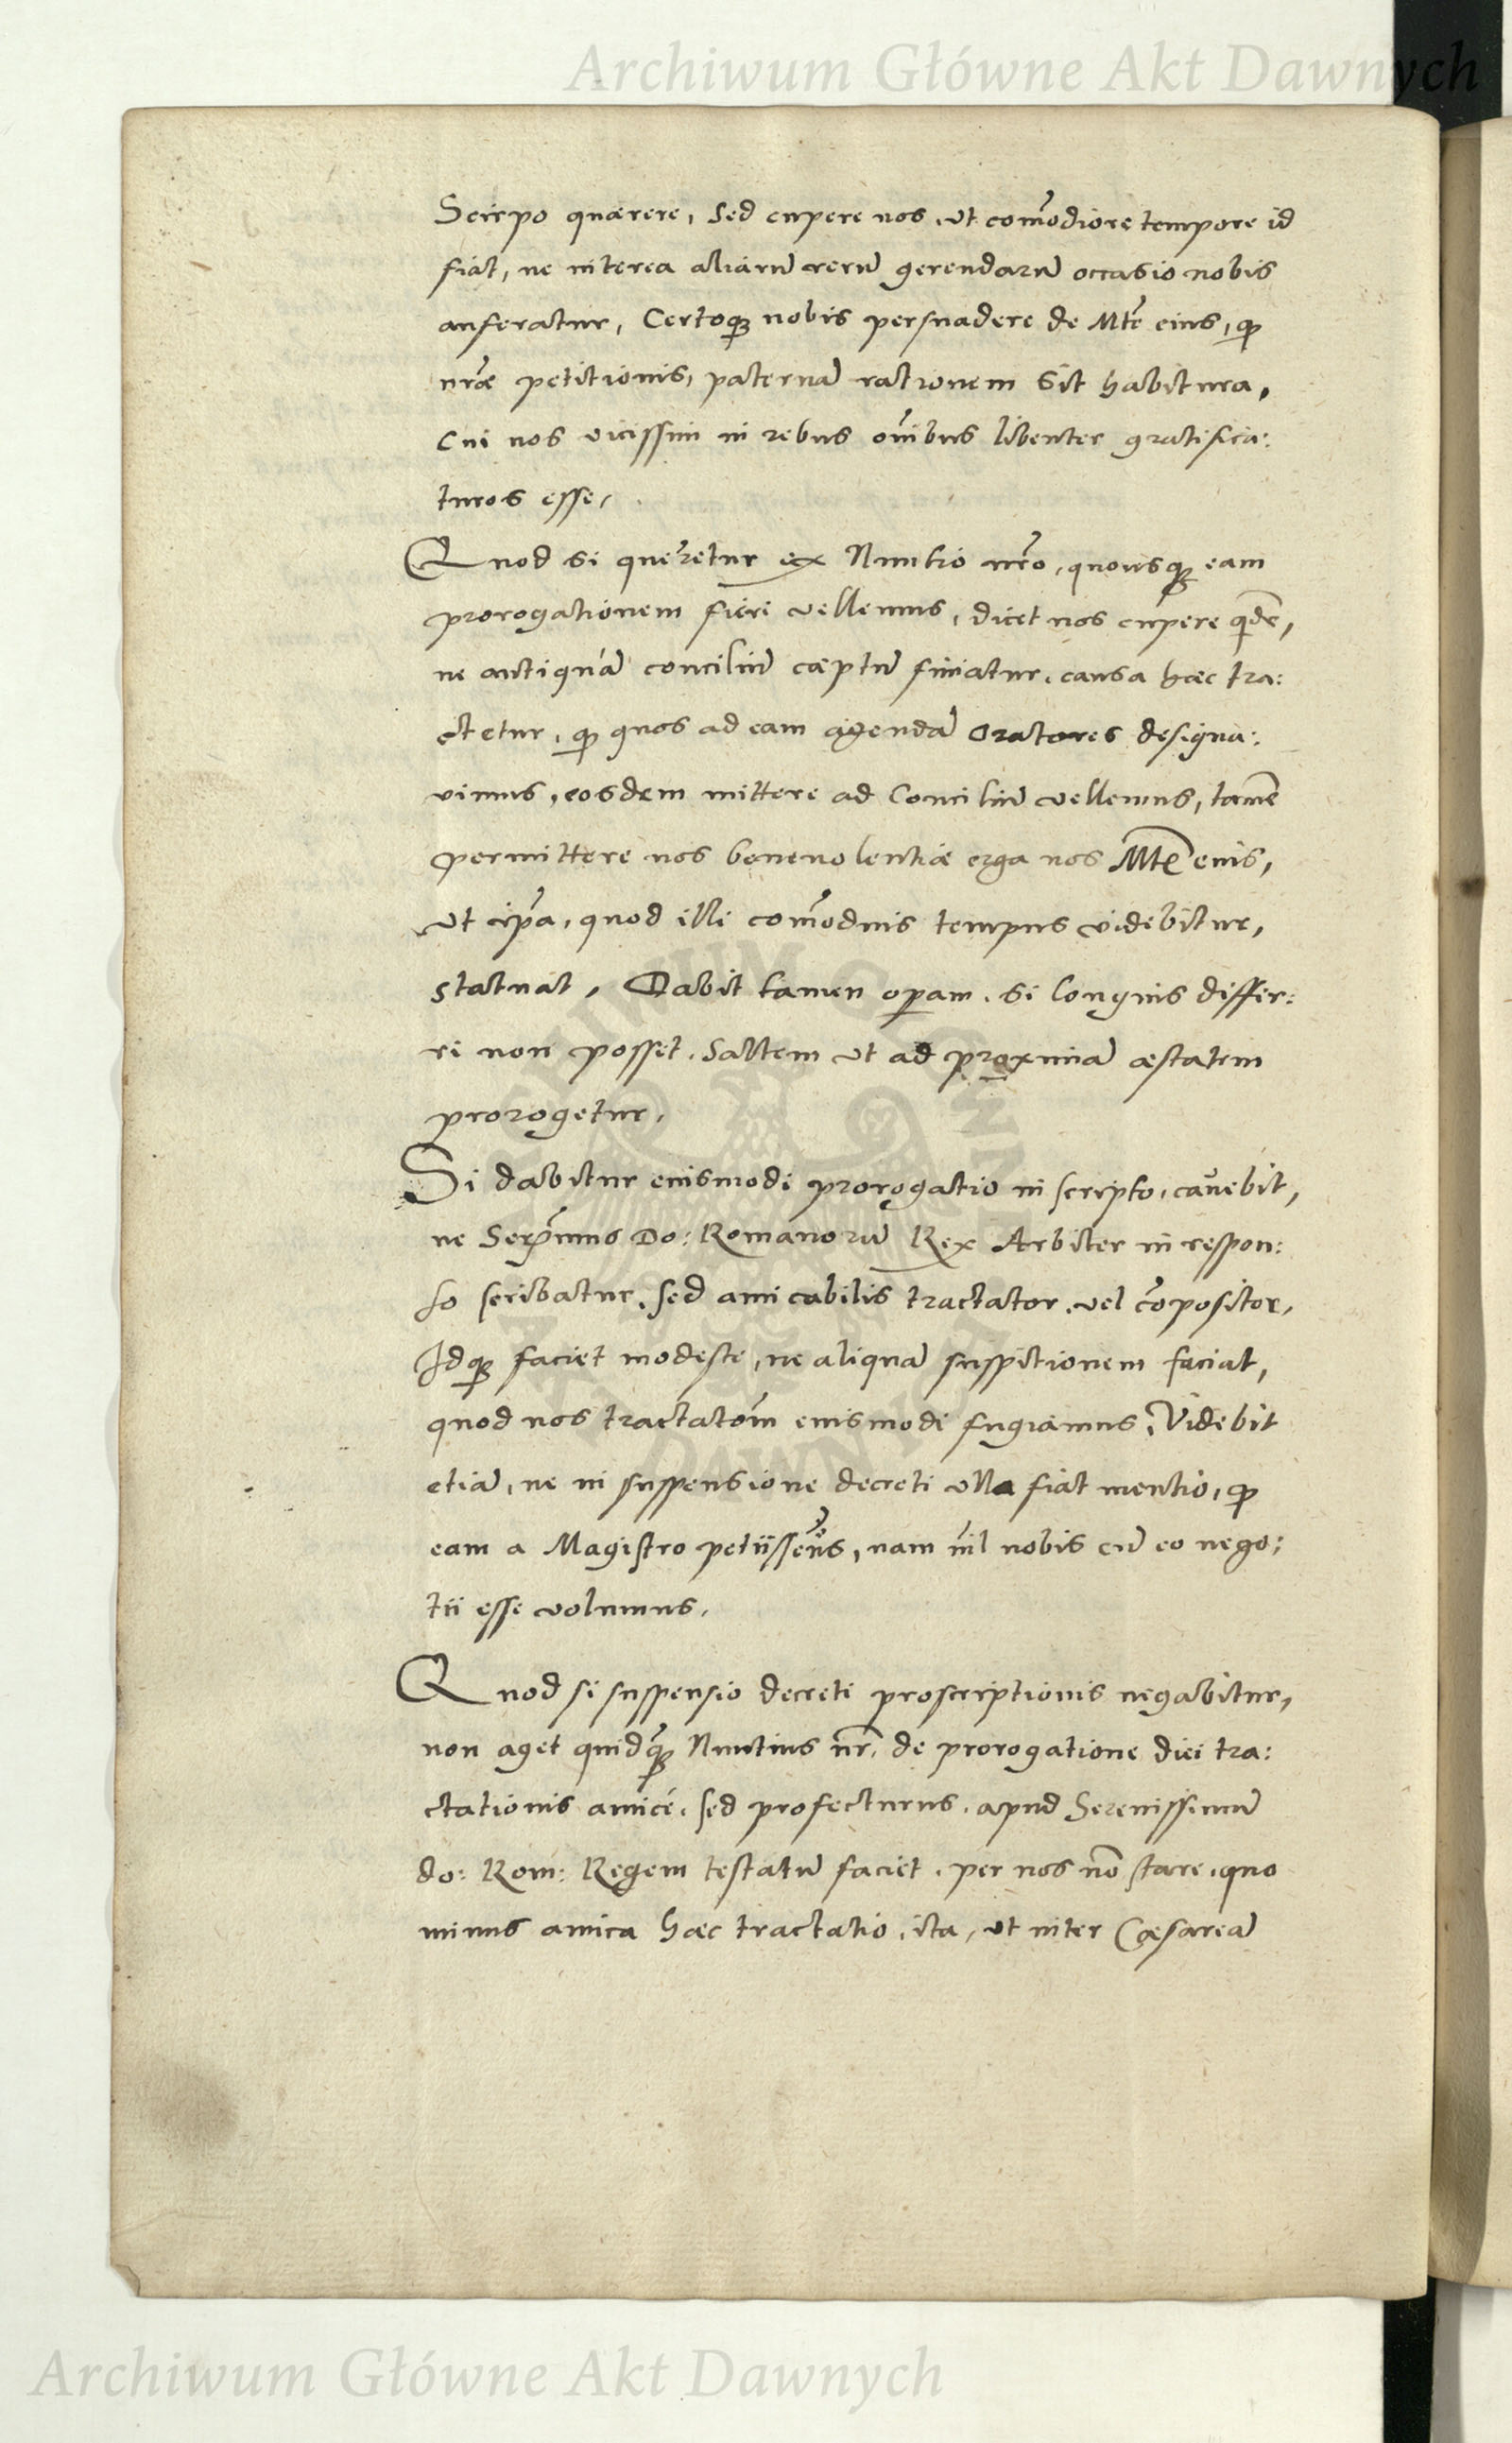 Archiwum Główne Akt Dawnych
Scirpo quærere, sed cupere nos, ut com̃odiore tempore id
fiat, ne interea aliarũ rerũ gerendarũ occasio nobis
auferatur, Certoq3 nobis persuadere de Mte͂ eius, qꝫ
nr̃æ petitionis, paternã rationem sit habitura,
Cui nos vicissim in rebus om̃ibus libenter gratifica:
turos esse,
Quod si queretur ex Nuntio nr̃o, quousq3 eam
prorogationem fieri vellemus, dicet nos cupere qde͂,
ne antiquã conciliũ cæptũ finiatur, causa hæc tra:
ctetur, qꝫ quos ad eam agendã Oratores designa:
vimus, eosdem mittere ad Conciliũ vellemus, tame͂
permittere nos benevolentiæ erga nos Mte͂ eius,
ut ip̃a, quod illi com̃odius tempus videbitur,
statuat, Dabit tamen operam, si longius differ:
ri non posset, saltem ut ad proximã æstatem
prorogetur,
Si dabitur eiusmodi prorogatio in scripto, cavebit,
ne Serẽnimus Do: Romanorũ Rex Arbiter in respon:
so scribatur, sed amicabilis tractator, vel cõpositor,
Idq3 faciet modeste, ne aliquã suspitionem faciat,
quod nos tractatõm eiusmodi fugiamus, Videbit
etiã, ne in suspensione decreti ulla fiat mentio, qꝫ
eam a Magistro petiissem̃s, nam nil̃ nobis cũ eo nego:
tii esse volumus,
Quod si suspensio decreti proscriptionis negabitur,
non aget quidq̃3 Nuntius nr̃, de prorogatione diei tra:
ctationis amicé, sed profecturus, apud Serenissimũ
do: Rom: Regem testatũ faciet, per nos nõ stare, quo
minus amica hæc tractatio, ita, ut inter Cæsareã
Archiwum Główne Akt Dawnych